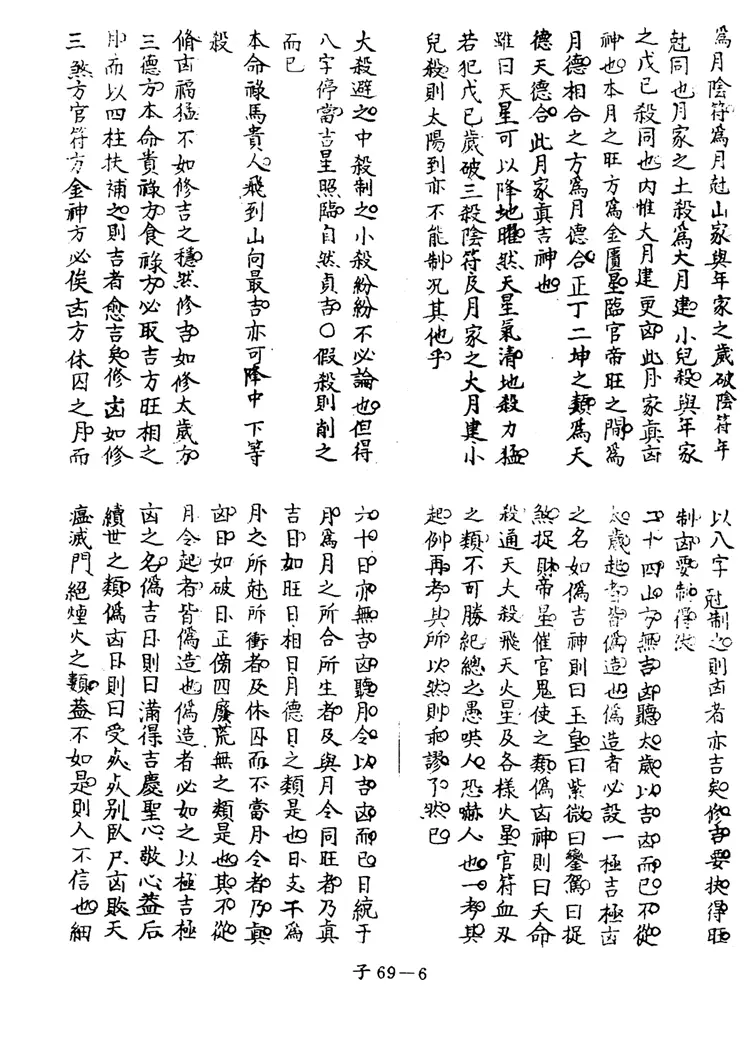 為月陰符為月尅山家與年家之歲破陰符年
尅同也月家之土殺為大月建小兒殺與年家
之戊已殺同也内惟大月建更凶此月家真凶
神也本月之旺方為金匱星臨官帝旺之間為
月德相合之方為月德合正丁二坤之類為天
德天德合此月家真吉神也
雖曰天星可以降地曜然天星氣清地殺力猛
若犯戊已歲破三殺陰符及月家之大月建小
兒殺則太陽到亦不能制况其他乎
大殺避之中殺制之小殺紛紛不必論也但得
八字停當吉星照臨自然貞吉○假殺則削之
而已
本命祿馬貴人飛到山向最吉亦可降中下等
殺
脩凶福猛不如修吉之穩然修吉如修太歲方
三德方本命貴祿方食祿方必取吉方旺相之
月而以四柱扶補之則吉者愈吉矣修凶如修
三煞方官符方金神方必俟凶方休囚之月而
以八字尅制之則凶者亦吉矣修吉要扶得旺
制凶要制得伏
二十四山方無吉凶聽太歲以吉凶而已不從
太歲起者皆偽造也偽造者必設一極吉極凶
之名如偽吉神則曰玉皇曰紫微曰鑾駕曰捉
煞捉財帝星催官鬼使之類偽凶神則曰夭命
殺通天大殺飛天火星及各樣火星官符血刃
之類不可勝紀總之愚哄人恐嚇人也一考其
起例再考其所以然則乖謬了然已
六十日亦無吉凶聽月令以吉凶而已日統于
月為月之所合所生者及與月令同旺者乃真
吉日如旺日相日月德日之類是也日支干為
月之所尅所衝者及休囚而不當月令者乃真
凶日如破日正傍四廢荒無之類是也其不從
月令起者皆偽造也偽造者必如之以極吉極
凶之名偽吉日則曰滿得吉慶聖心敬心益后
續世之類偽凶日則曰受死死别臥尸凶敗天
瘟滅門絕煙火之類蓋不如是則人不信也細
子69—6